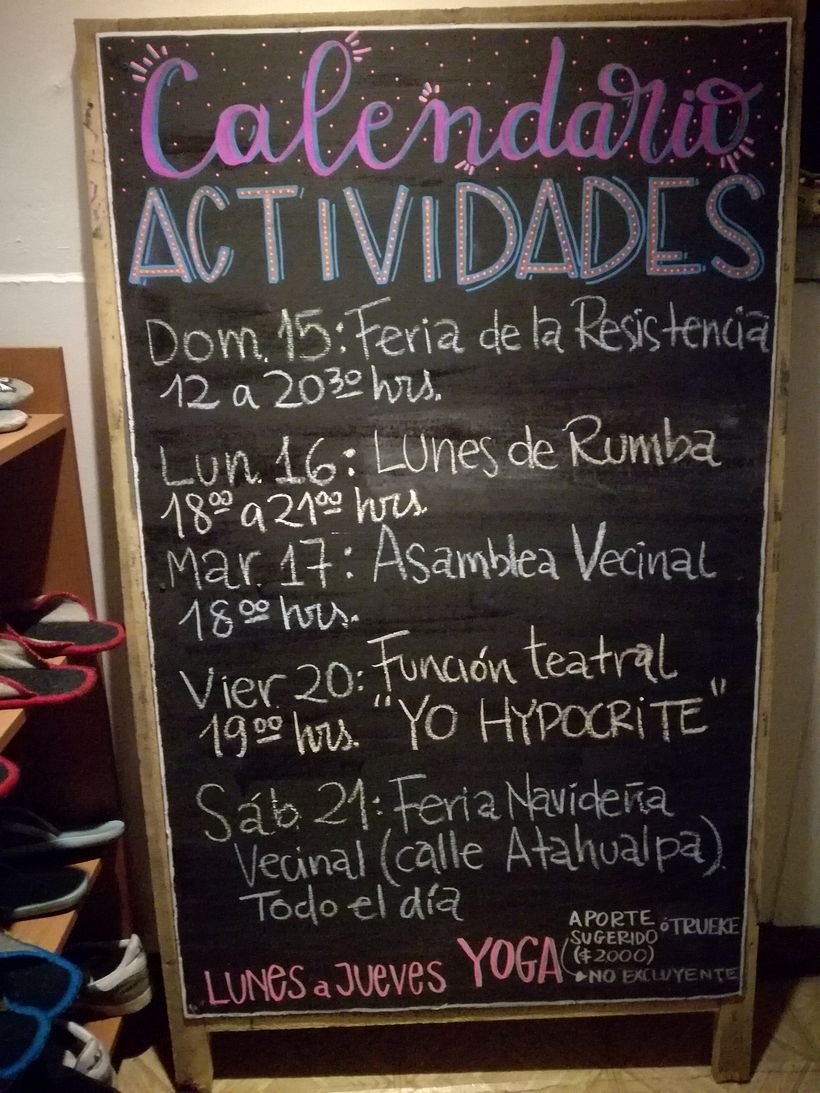 Calendario
ACTIVIDADES
Dom. 15: Feria de la Resistencia
12 a 20³⁰ hrs.
Lun. 16: Lunes de Rumba
18⁰⁰ a 21⁰⁰ hrs.
Mar. 17: Asamblea Vecinal
18⁰⁰ hrs.
Vier. 20: Función teatral
19⁰⁰ hrs. "YO HYPOCRITE"
Sáb. 21: Feria Navideña
Vecinal (calle Atahualpa).
Todo el día
LUNES a JUEVES YOGA
APORTE
SUGERIDO ó TRUEKE
($2000)
NO EXCLUYENTE